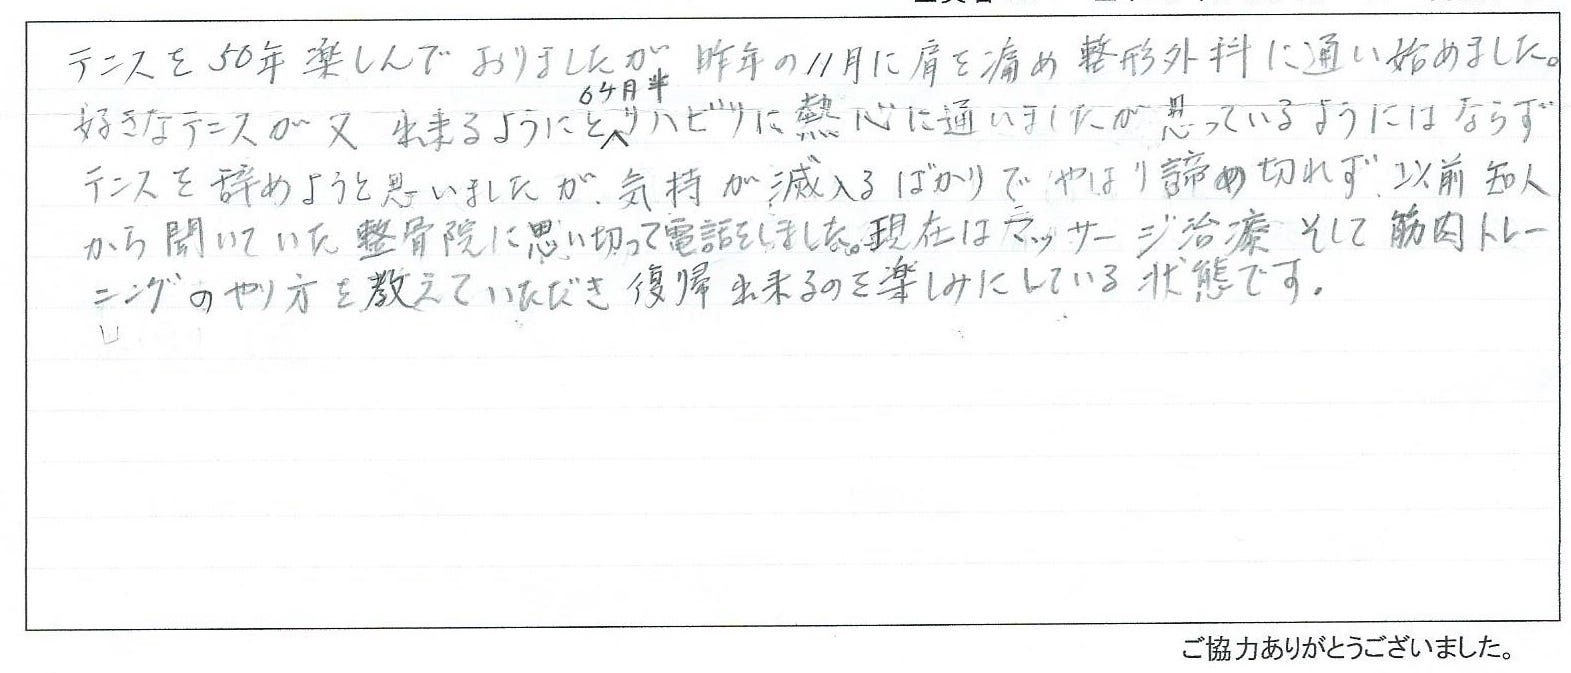 テニスを50年楽しんでおりましたが 昨年の11月に肩を痛め整形外科に通い始めました。
6ケ月半
好きなテニスが又 出来るようにとリハビリに熱心に通いましたが思っているようにはならず
テニスを辞めようと思いましたが、気持が滅入るばかりでやはり諦め切れず、以前知人
から聞いていた整骨院に思い切って電話をしました。現在はマッサージ治療そして筋肉トレー
ニングのやり方を教えていただき復帰出来るのを楽しみにしている状態です。
ご協力ありがとうございました。